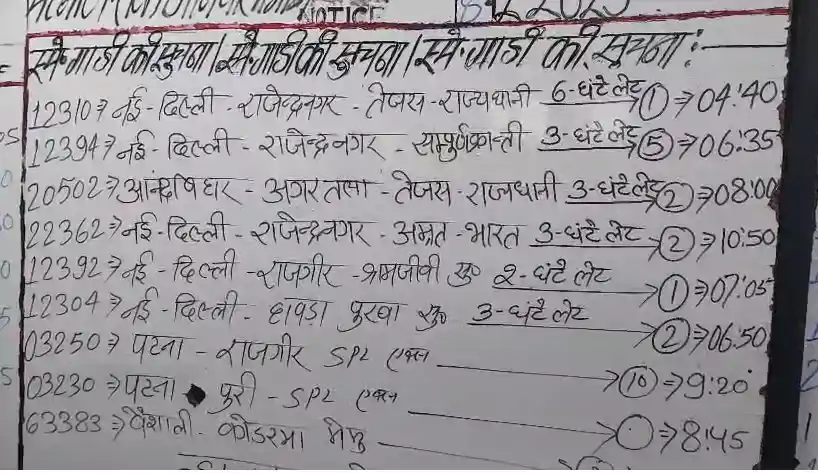 NOTICE
समे.गाडी की सुचना। समे.गाडी की सुचना। समे.गाडी की. सुचना:—
12310→ नई-दिल्ली-राजेन्द्रनगर-तेजस-राज्यधानी 6-घंटै लेट ①⇒04:40
12394→ नई-दिल्ली-राजेन्द्रनगर-सम्पुर्णक्रान्ती 3-घंटै लेट ⑤⇒06:35
20502→ आनंदबिहार-अगरतला-तेजस-राजधानी 3-घंटै लेट ②⇒08:00
22362→ नई-दिल्ली-राजेन्द्रनगर-अम्रत-भारत 3-घंटै लेट →②⇒10:50
12392→ नई-दिल्ली-राजगीर-श्रमजीवी सु० 2-घंटै लेट →①⇒07:05
12304→ नई-दिल्ली-हावड़ा पुरवा सु० 3-घंटै लेट →②⇒06:50
03250→ पटना-राजगीर SPL एक्स →⑩⇒9:20
03230→ पटना पुरी-SPL एक्स
63383→ वैशाली-कोडरमा मेमु →◯⇒8:45